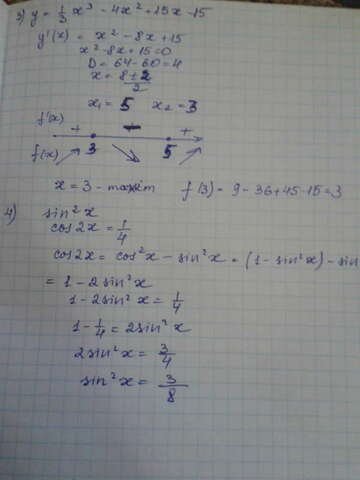 3) y = 1/3 x³ - 4x² + 15x - 15
y'(x) = x² - 8x + 15
x² - 8x + 15 = 0
D = 64 - 60 = 4
x = (8 ± 2)/2
x₁ = 5 x₂ = 3
f'(x) + - +
3 5
f(x)
x = 3 - max f(3) = 9 - 36 + 45 - 15 = 3
4) sin² x
cos 2x = 1/4
cos 2x = cos² x - sin² x = (1 - sin² x) - sin
= 1 - 2 sin² x
1 - 2 sin² x = 1/4
1 - 1/4 = 2 sin² x
2 sin² x = 3/4
sin² x = 3/8